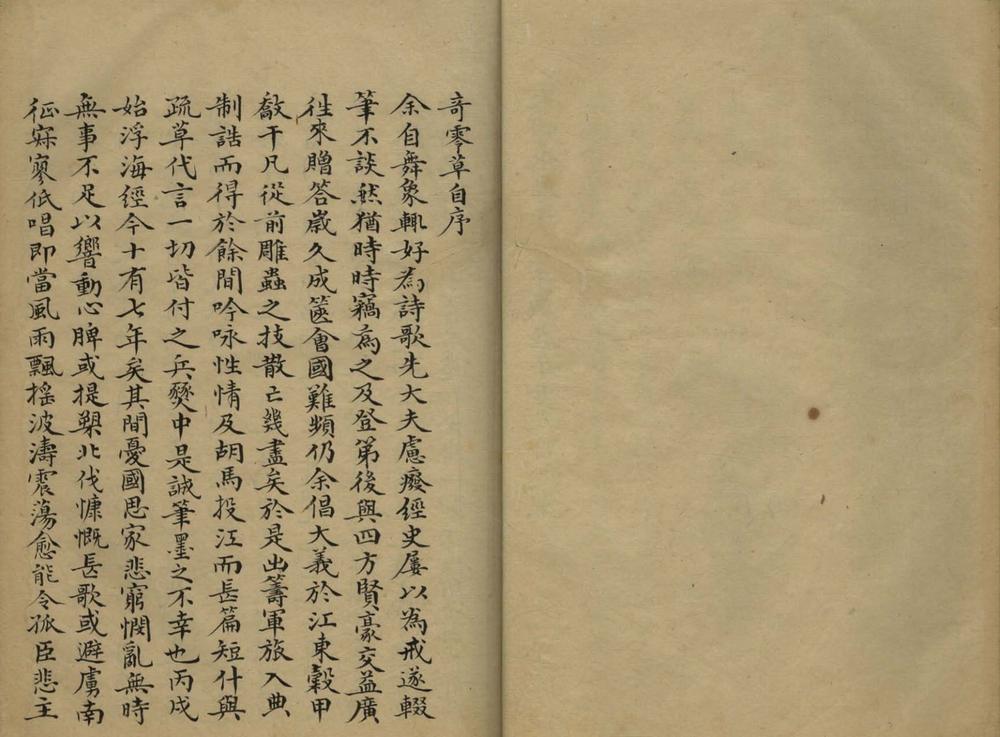 奇零草自序
余自舞象輒好為詩歌先大夫慮癈經史屢以為戒遂輟
筆不談然猶時時竊為之及登第後與四方賢豪交益廣
徃來贈答嵗久成篋會國難頻仍余倡大義於江東糓甲
敽干凡從前雕蟲之技散亡幾盡矣於是出籌軍旅入典
制誥而得於餘間吟咏性情及胡馬投江而長篇短什與
疏草代言一切皆付之兵燹中是誠筆墨之不幸也丙戌
始浮海經今十有七年矣其間憂國思家悲窮憫亂無時
無事不足以響動心脾或提槊北伐慷慨長歌或避虜南
征寂寥低唱即當風雨飄搖波濤震蕩愈能令孤臣悲主